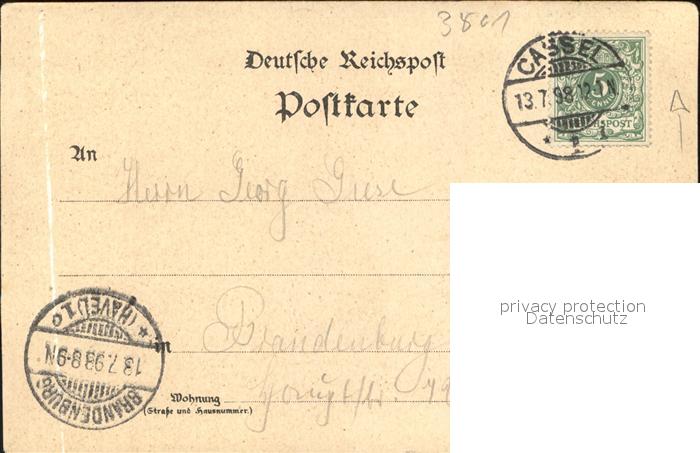 3801
Deutsche Reichspost
Postkarte
CASSEL
13.7.98.12-1N
* 1
5
REICHSPOST
An
Herrn Georg Giese
privacy protection
Datenschutz
in
Brandenburg
Hauptstr. 49
Wohnung
(Straße und Hausnummer.)
BRANDENBURG
13.7.98.8-9N
* (HAVEL) 1 o